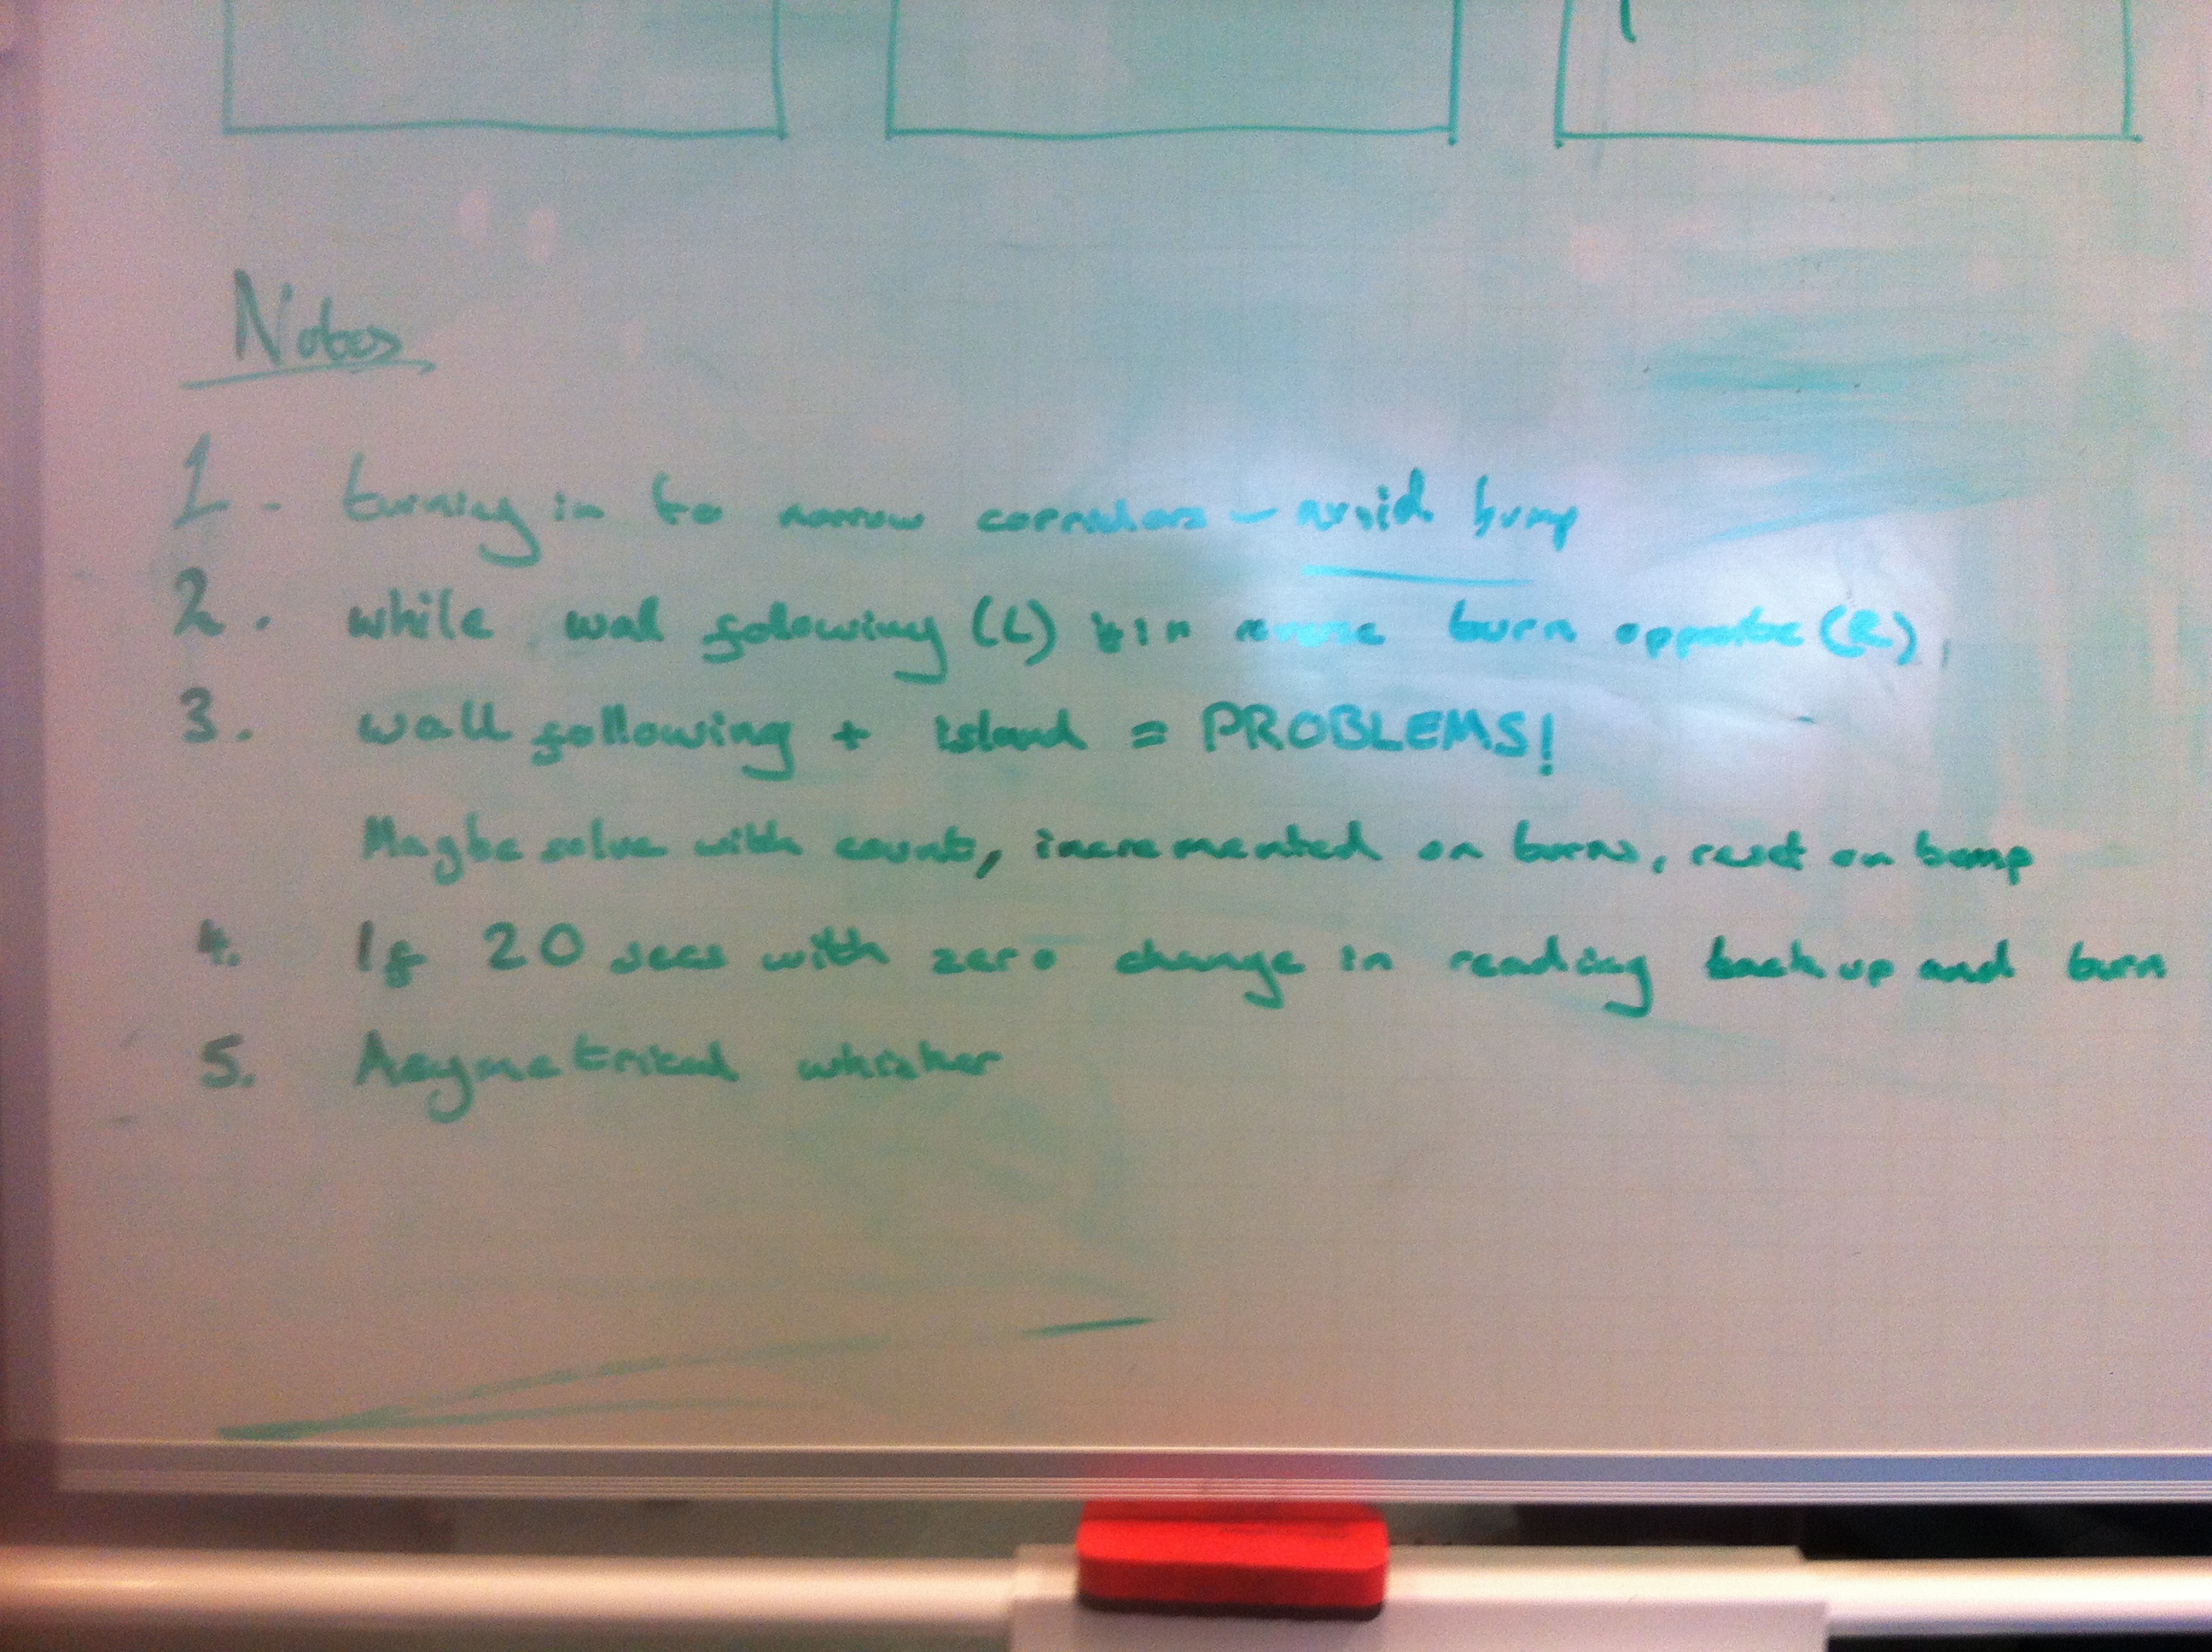 Notes
1. turning in to narrow corridors - avoid bump
2. while wal folowing (L) in reverse turn opposite (R)
3. wall following + island = PROBLEMS!
Maybe solve with count, incremented on turns, reset on bump
4. If 20 secs with zero change in reading back up and turn
5. Asymetrical whisker